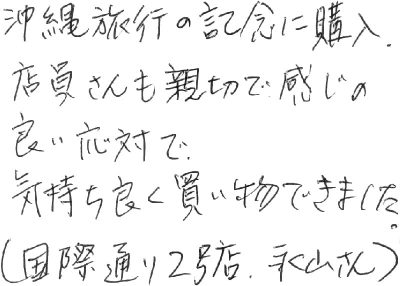 沖縄旅行の記念に購入.
店員さんも親切で感じの
良い応対で、
気持ち良く買い物できました。
(国際通り2号店. 永山さん)